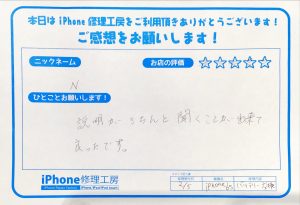 本日は iPhone 修理工房をご利用頂きありがとうございます！
ご感想をお願いします！
ニックネーム
お店の評価 ☆☆☆☆☆
N
ひとことお願いします！
説明がきちんと聞くことが出来て
よかったです。
iPhone修理工房
2/5 iPhone6s バッテリー交換